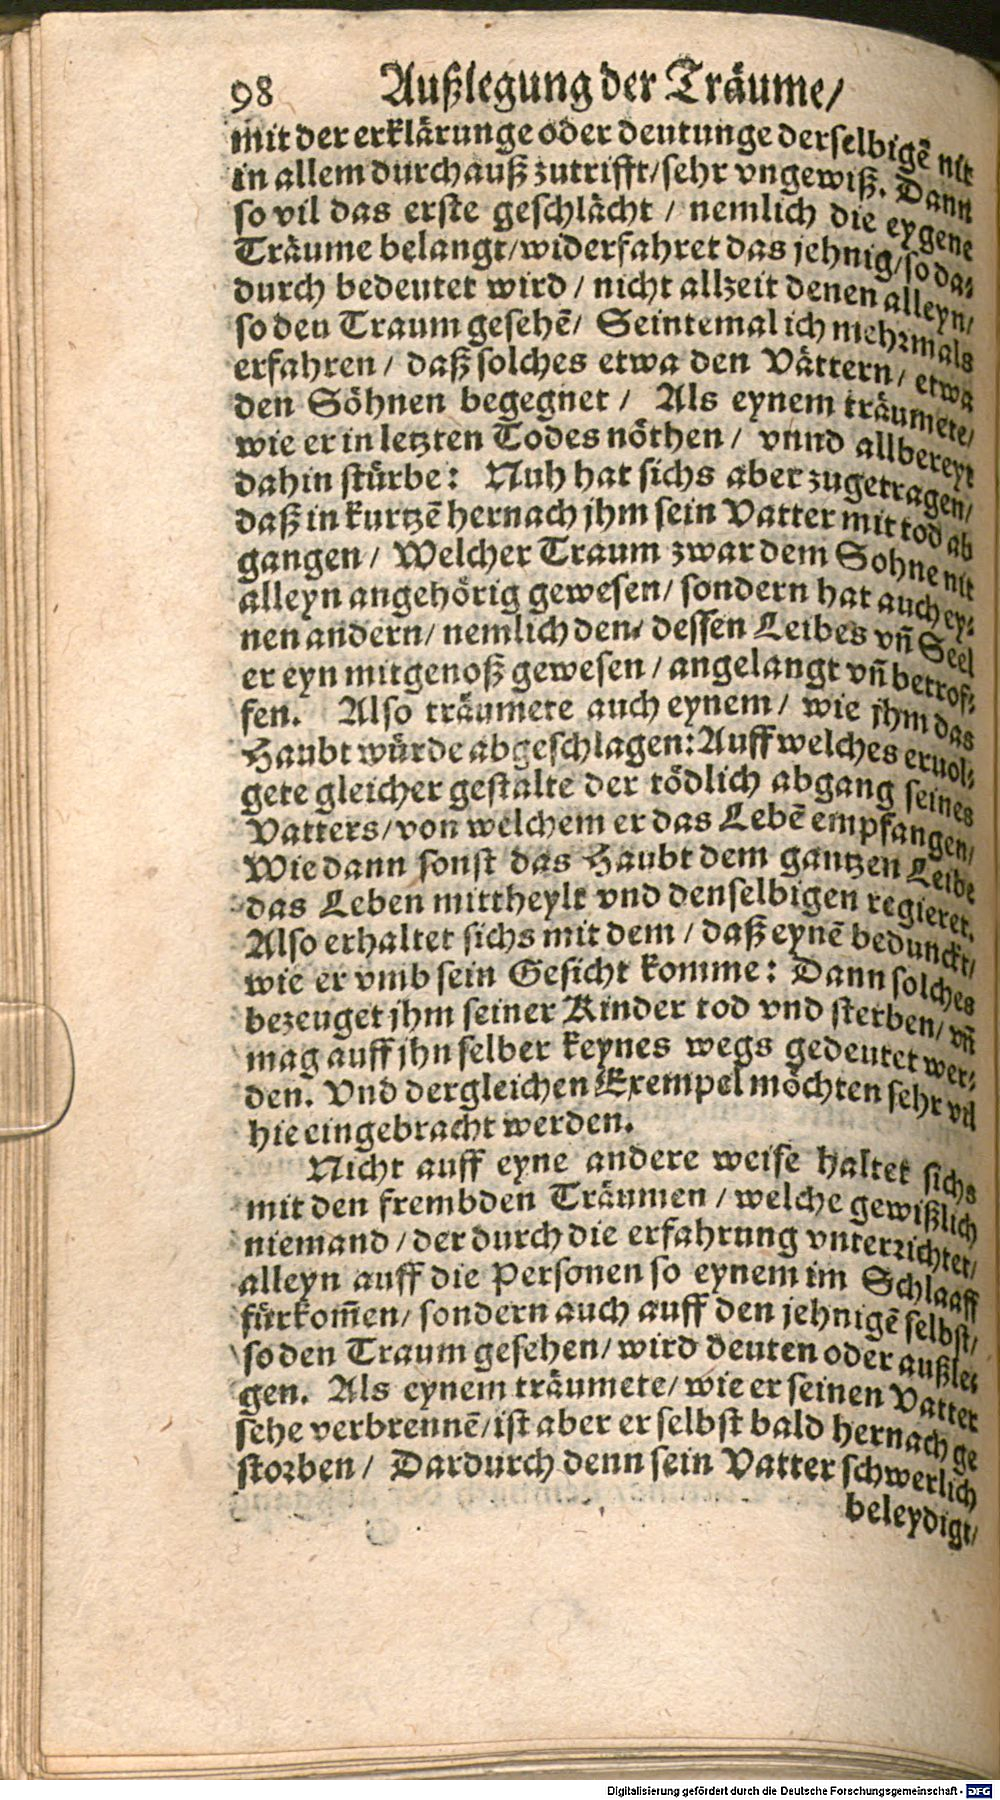 98 Außlegung der Träume/
mit der erklärunge oder deutunge derselbigẽ nit
in allem durchauß zutrifft/sehr vngewiß. Dann
so vil das erste geschlächt / nemlich die eygene
Träume belangt/widerfahret das jehnig/so da⸗
durch bedeutet wird / nicht allzeit denen alleyn/
so den Traum gesehẽ/ Seintemal ich mehꝛmals
erfahren / daß solches etwa den Vättern/ etwa
den Söhnen begegnet / Als eynem träumete/
wie er in letzten Todes nöthen / vnnd allbereyt
dahin stürbe: Nuh hat sichs aber zugetragen/
daß in kurtzẽ hernach jhm sein Vatter mit tod ab
gangen / Welcher Traum zwar dem Sohne nit
alleyn angehörig gewesen/ sondern hat auch ey⸗
nen andern/ nemlich den/ dessen Leibes vñ Seel
er eyn mitgenoß gewesen / angelangt vñ betrof⸗
fen. Also träumete auch eynem/ wie jhm das
Haubt würde abgeschlagen: Auff welches eruol⸗
gete gleicher gestalte der tödlich abgang seines
Vatters/von welchem er das Lebẽ empfangen/
Wie dann sonst das Haubt dem gantzen Leibe
das Leben mittheylt vnd denselbigen regieret.
Also erhaltet sichs mit dem / daß eynẽ bedunckt/
wie er vmb sein Gesicht komme: Dann solches
bezeuget jhm seiner Kinder tod vnd sterben/ vñ
mag auff jhn selber keynes wegs gedeutet wer⸗
den. Vnd dergleichen Exempel möchten sehr vil
hie eingebracht werden.
Nicht auff eyne andere weise haltet sichs
mit den frembden Träumen / welche gewißlich
niemand / der durch die erfahrung vnterꝛichtet/
alleyn auff die Personen so eynem im Schlaaff
fürkom̃en/ sondern auch auff den jehnigẽ selbst/
so den Traum gesehen/ wird deuten oder außle⸗
gen. Als eynem träumete/ wie er seinen Vatter
sehe verbrennẽ/ist aber er selbst bald hernach ge
stoꝛben / Dardurch denn sein Vatter schwerlich
beleydigt/
Digitalisierung gefördert durch die Deutsche Forschungsgemeinschaft - DFG